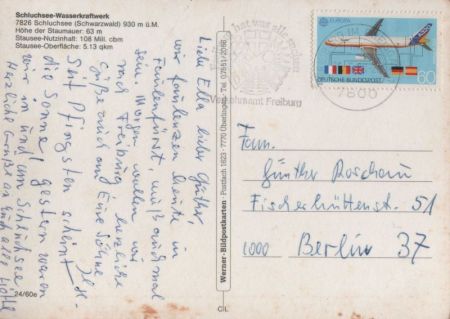 Schluchsee-Wasserkraftwerk
7826 Schluchsee (Schwarzwald) 930 m ü.M.
Höhe der Staumauer: 63 m
Stausee-Nutzinhalt: 108 Mill. cbm
Stausee-Oberfläche: 5.13 qkm
Liebe Ella, lieber Günther,
wir faulenzen heute in
muß auch mal
sein. Morgen wollen wir
nach Freiburg. herzliche
Grüße auch an Eure Söhne
Seit Pfingsten scheint
die Sonne, gestern waren
wir in und um Schluchsee.
Herzliche Grüße an Euch alle
24/60e
Werner-Bildpostkarten · Postfach 1623 · 7770 Überlingen · Tel. 07551/2096
C/L
hat was alle
Freiburg
EUROPA
DEUTSCHE BUNDESPOST
60
7800
Fam.
Günther Roschau
Fischerhüttenst. 51
1000 Berlin 37